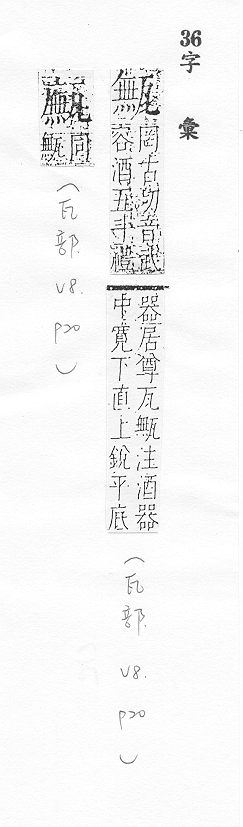 36
字彙
甒
罔古切音武
容酒五斗禮
器居尊瓦甒注酒器
中寬下直上銳平底
(瓦部 V8. P20)
同
甒
(瓦部 V8 P20)